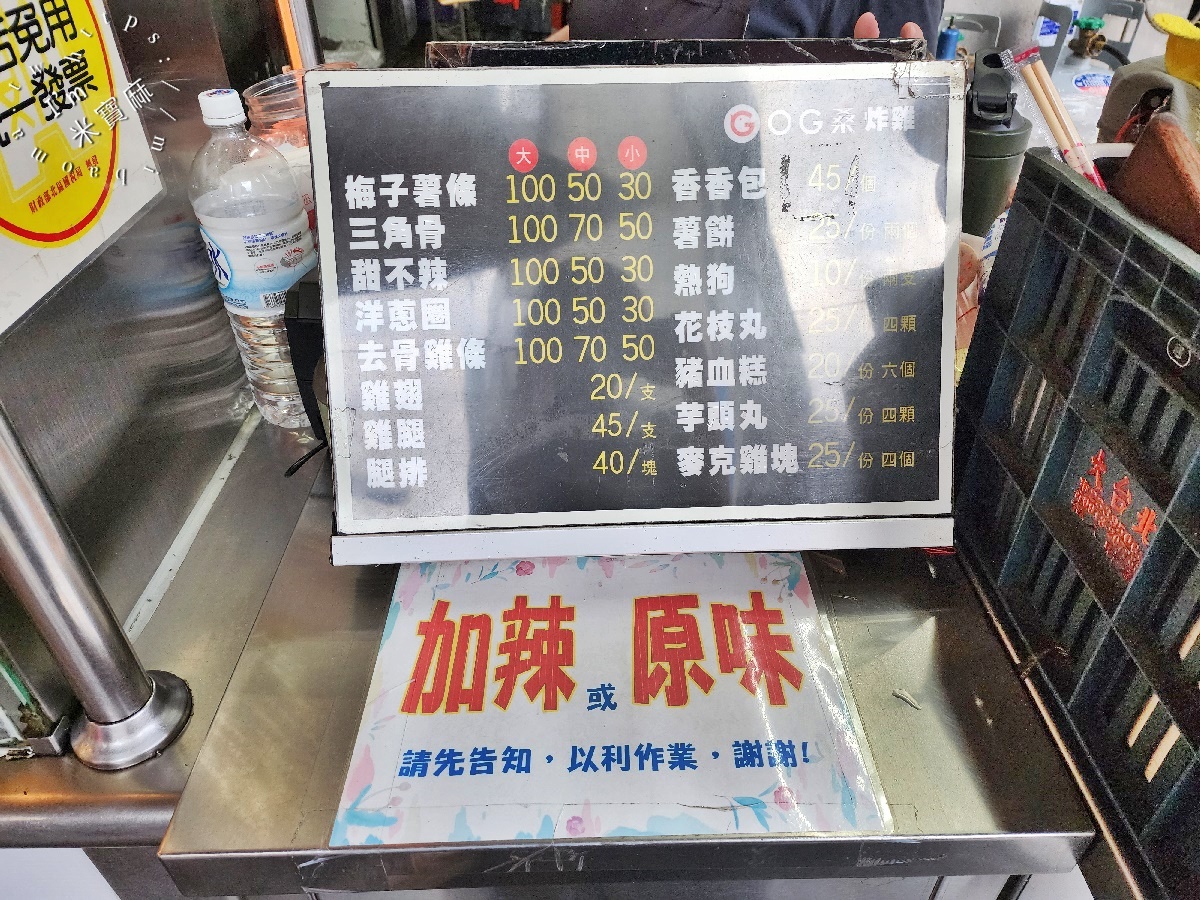 米寶麻
免用
發票
財政部北區國稅局
GOG桑 炸雞
大 中 小
梅子薯條 100 50 30
三角骨 100 70 50
甜不辣 100 50 30
洋蔥圈 100 50 30
去骨雞條 100 70 50
雞翅 20/支
雞腿 45/支
腿排 40/塊
香香包 45/個
薯餅 25/份 兩個
熱狗 10/
花枝丸 25/ 四顆
豬血糕 20/份 六個
芋頭丸 25/份 四顆
麥克雞塊 25/份 四個
加辣 或 原味
請先告知，以利作業，謝謝!